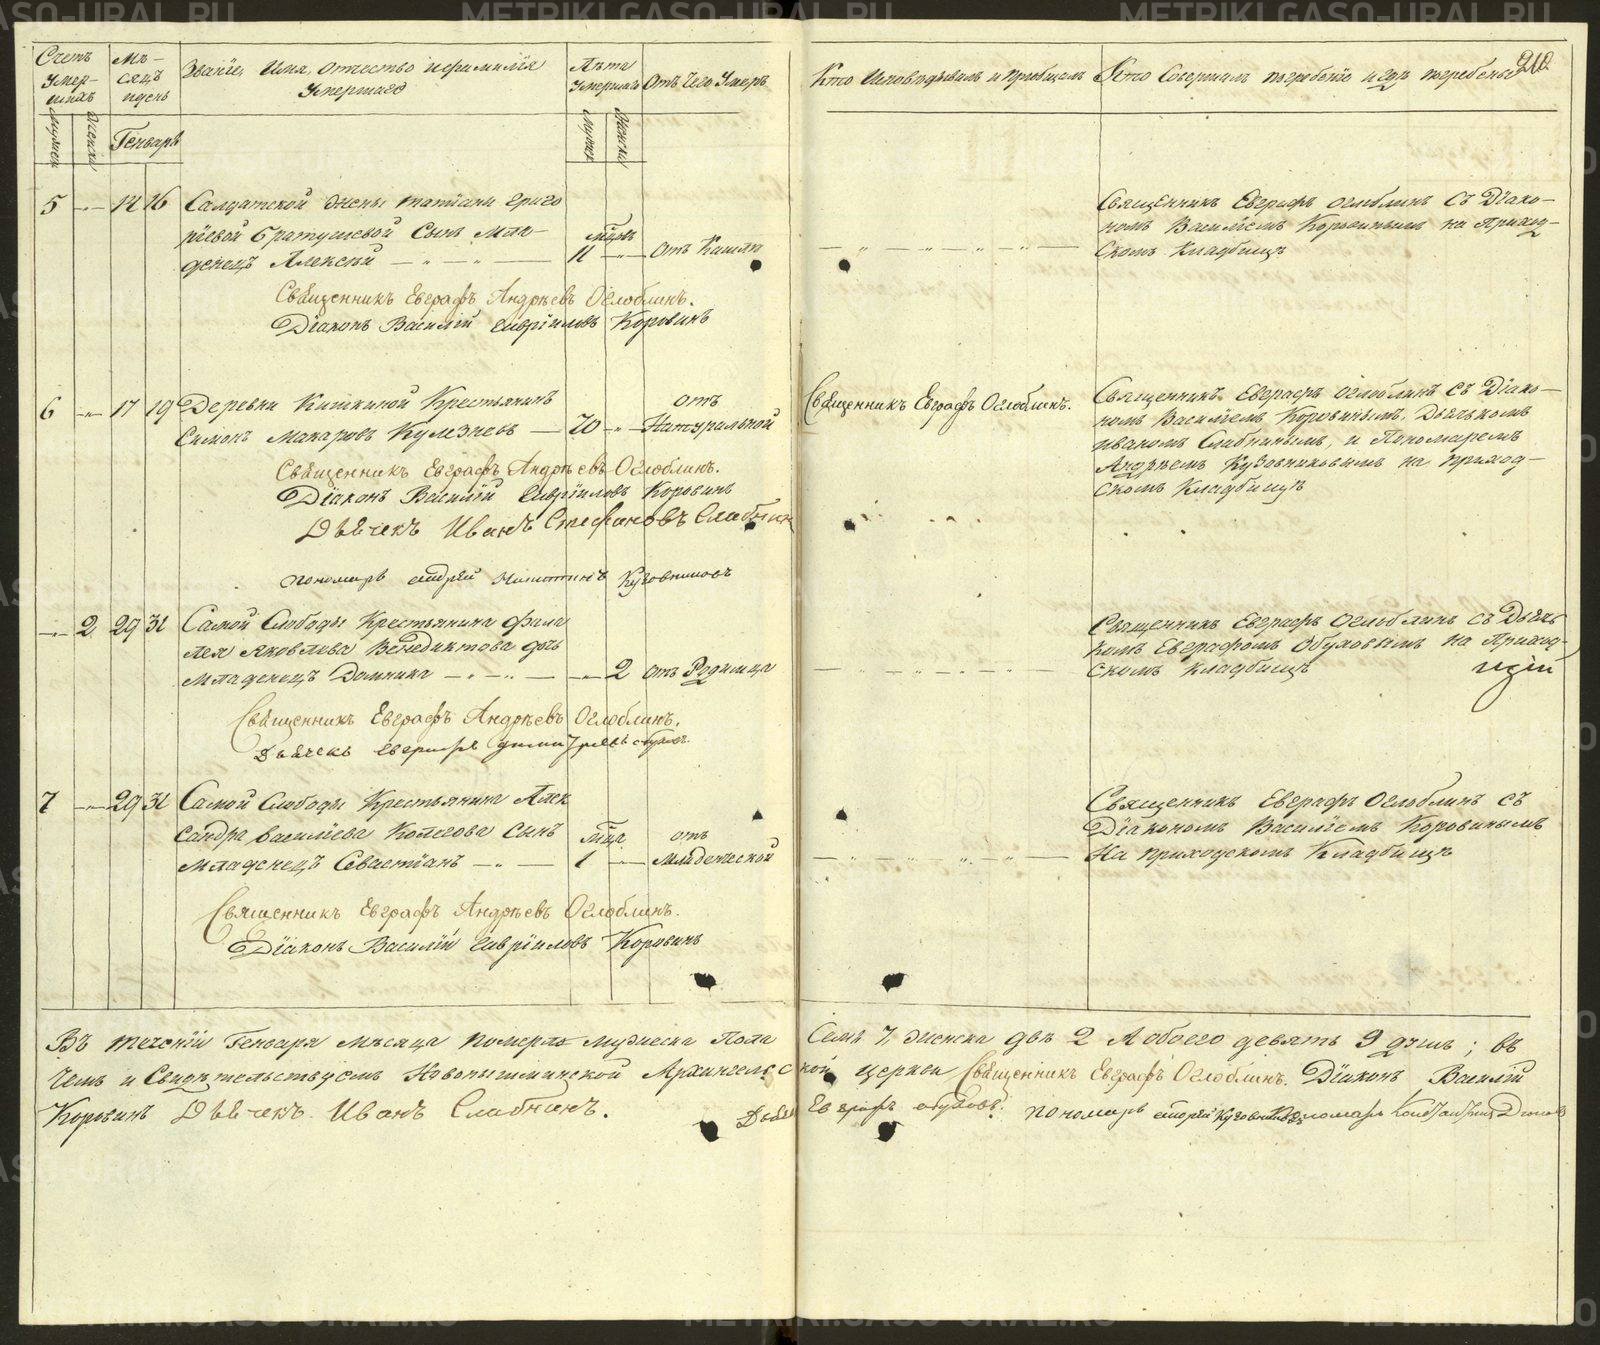 Счетъ умер-шихъ
Мѣ-сяцъ и день
Званіе, Имя, Отчество и фамилія Умершаго
Лѣта Умершаго
Отъ чего Умеръ
Кто Исповѣдывалъ и Приобщалъ
Кто Совершалъ погребеніе и гдѣ погребены
210
Мужеск
Женска
Генварь
Мужск
Женски
5 14 16 Салдатской жены Татіаны Григо
ріевой Братушевой Сынъ Мла-
мцовъ
денецъ Алексѣй 11 Отъ Кашля
Священникъ Евграфъ Оглоблинъ съ Діако-
номъ Василіемъ Коровинымъ на Приход-
скомъ кладбищѣ
Священникъ Евграфъ Андрѣевъ Оглоблинъ.
Діаконъ Василій Гавріиловъ Коровинъ
6 17 19 Деревни Кипкиной Крестьянинъ отъ
Симонъ Макаровъ Кулезневъ 70 Натуральной
Священникъ Евграфъ Оглоблинъ.
Священникъ Евграфъ Оглоблинъ съ Діако-
номъ Василіемъ Коровинымъ, Дьячкомъ
Иваномъ Слабнинымъ, и Пономаремъ
Андрѣемъ Кузовниковымъ на приход-
скомъ Кладбищѣ
Священникъ Евграфъ Андрѣевъ Оглоблинъ.
Діаконъ Василій Гавріиловъ Коровинъ
Дьячекъ Иванъ Стефановъ Слабнин
пономарь андрей Никитинъ Кузовниковъ
2 29 31 Самой Слободы Крестьянина Фала
лея Яковлева Венедиктова дочь
младенецъ Домника 2 отъ Родимца
Священникъ Евграфъ Оглоблинъ съ Дьяч
комъ Евграфомъ Обуховымъ на Приход-
скомъ кладбищѣ
Священникъ Евграфъ Андрѣевъ Оглоблинъ.
Дьячекъ Евграфъ Димитріевъ обуховъ
7 29 31 Самой Слободы Крестьянина Алек
сандра Василіева Колегова сынъ мца отъ
младенецъ Севастіанъ 1 Младенческой
Священникъ Евграфъ Оглоблинъ съ
Діакономъ Василіемъ Коровинымъ
На приходскомъ Кладбищѣ
Священникъ Евграфъ Андрѣевъ Оглоблинъ.
Діаконъ Василій Гавріиловъ Коровинъ
Въ теченіи Генваря мѣсяца померло мужеска Пола Семь 7, женска двѣ 2 А обоего девять 9 душъ; въ
чемъ и Свидѣтельствуемъ Новопышминской Архангельской церкви Священникъ Евграфъ Оглоблинъ. Діаконъ Василій
Коровинъ Дьячекъ Иванъ Слабнинъ. Дьячек Евграфъ обуховъ. пономарь андрей Кузовниковъ
METRIKI.GASO-URAL.RU